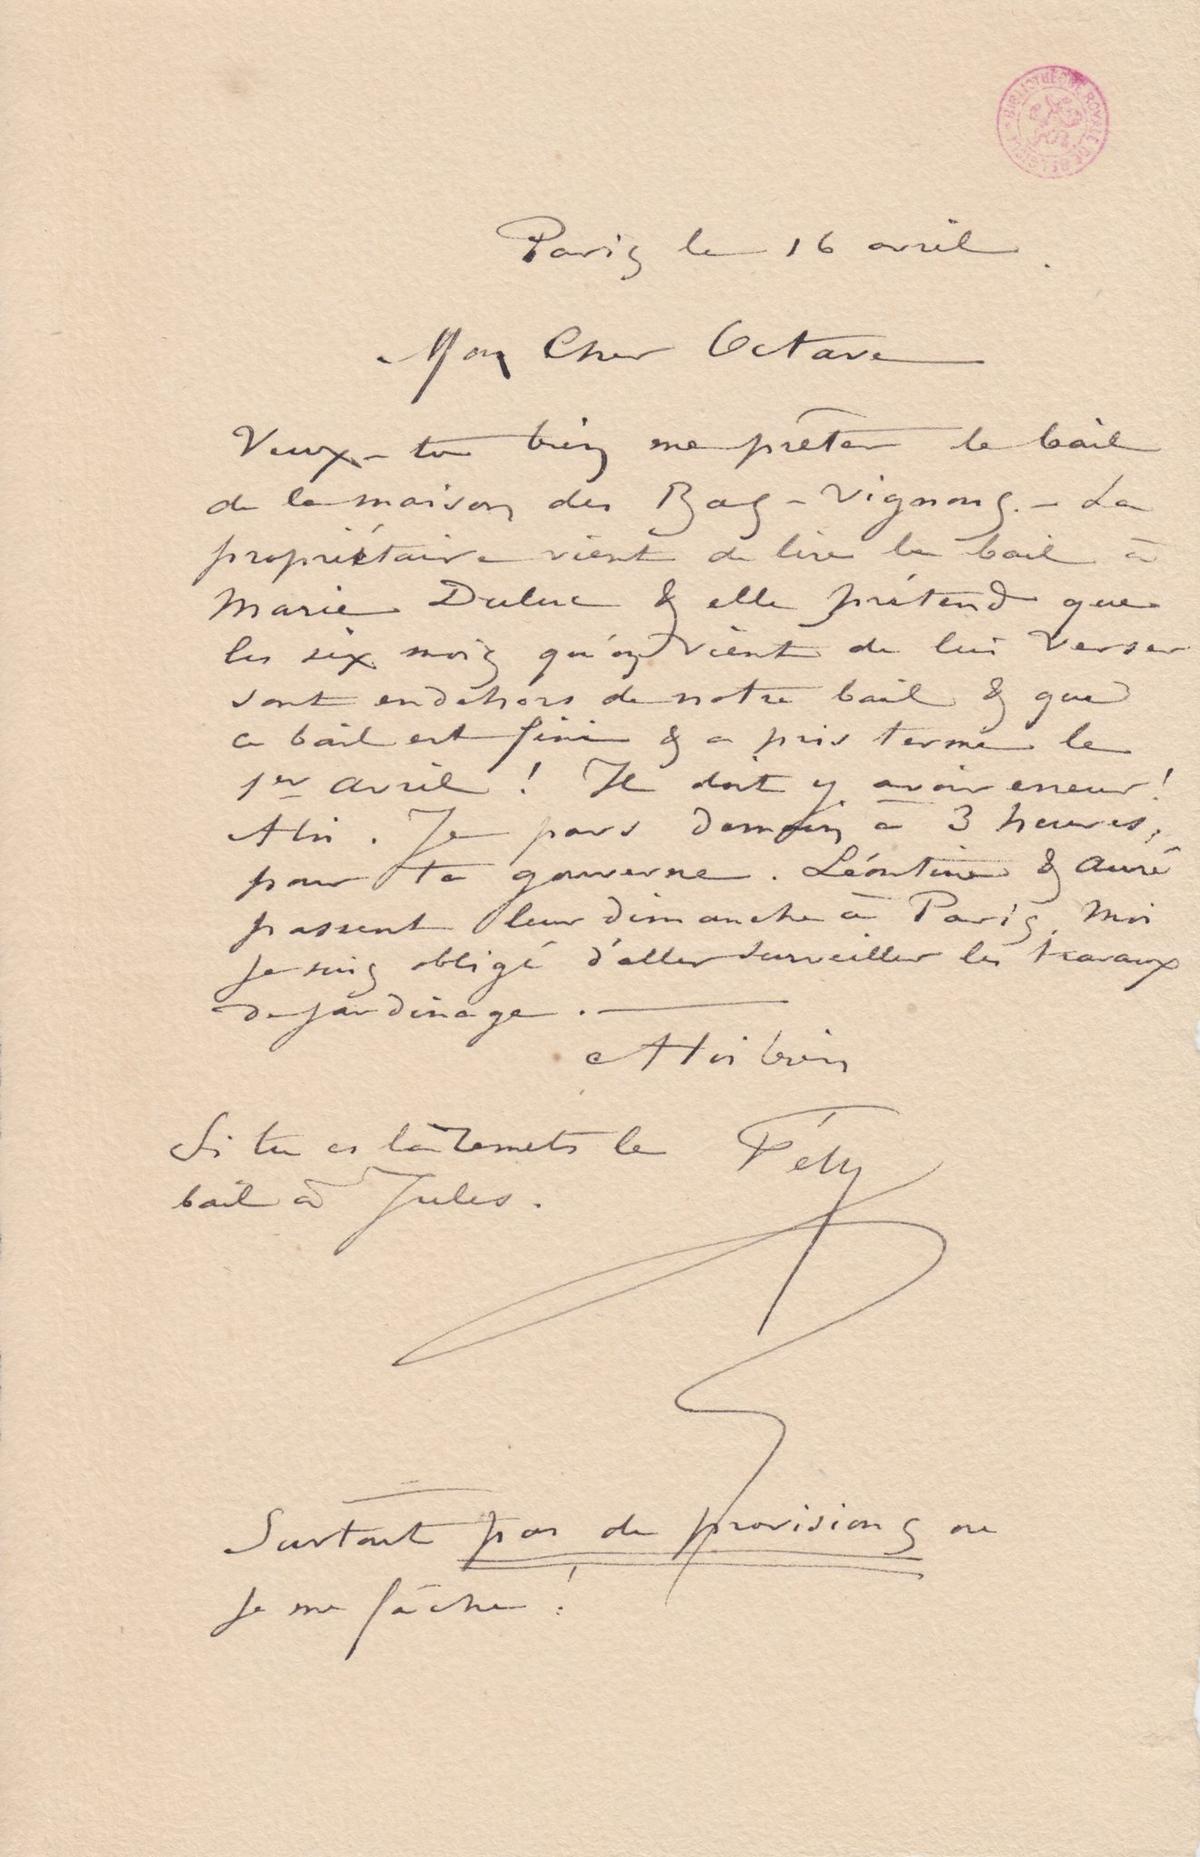 BIBLIOTHÈQUE ROYALE DE BELGIQUE
Paris le 16 avril.
Mon Cher Octave
Veux-tu bien me prêter le bail
de la maison des Bas-Vignons. – La
propriétaire vient de lire le bail à
Marie Duluc & elle prétend que
les six mois qu'on vient de lui verser
sont endehors de notre bail & que
ce bail est fini & a pris terme le
1er avril ! Il doit y avoir erreur !
A toi. Je pars demain à 3 heures,
pour ta gouverne. Léontine & Auré
passent leur dimanche à Paris, moi
je suis obligé d'aller surveiller les travaux
de jardinage.
A toi bien
Si tu es là remets le
bail à Jules.
Fély
Surtout pas de provisions ou
je me fâche !